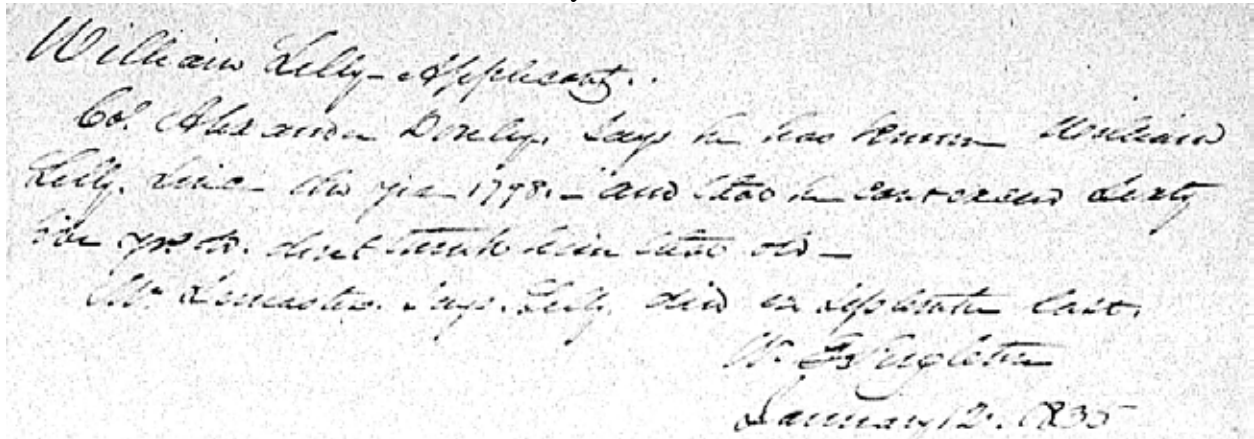 William Lilly - Applicant.
Col. Alexander says he has known William
Lilly. since the year 1798. - and that he sixty
five yrs old. dont think him that old -
Mr Lancaster. says. Lilly. died in September last.
W. G. Singleton
January 12. 1835